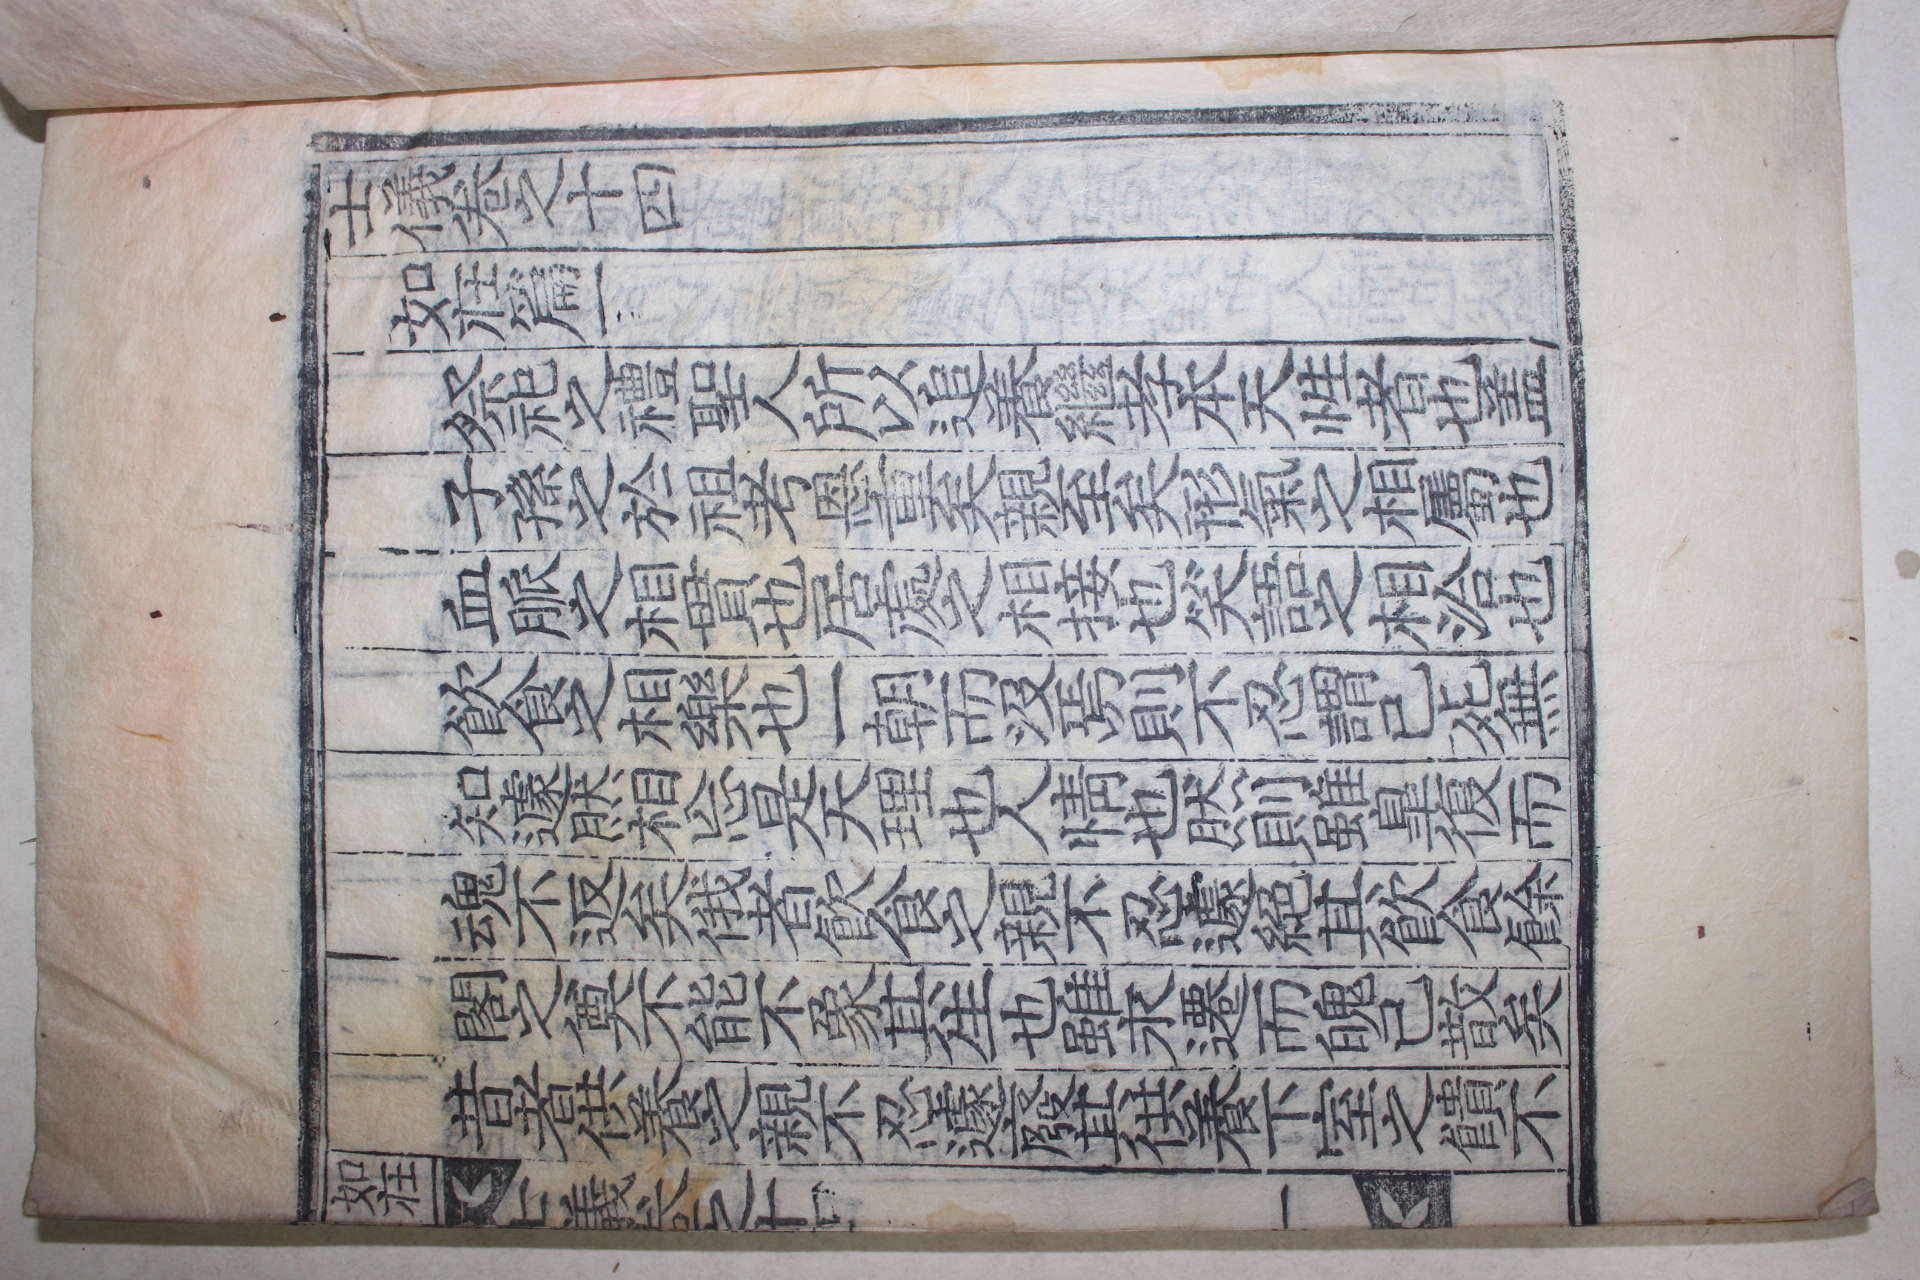 士儀卷之十四
如在篇一
祭祀之禮聖人所以追養繼孝本天性者也盖
子孫之於祖考恩重矣親至矣形氣之相屬也
血脉之相貫也居處之相接也笑語之相洽也
飲食之相樂也一朝而沒焉則不忍謂已死無
知遽然相忘是天理也人情也然則雖皐復而
魂不返矣俄者飲食之親不忍遽絕其飲食餘
閣之奠不能不象其生也雖禾遷而魄已散矣
昔者供養之親不忍遽廢其往養下室之饋不
如在
士儀卷之十四
一